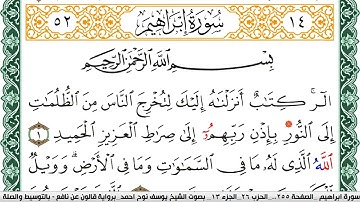 ١٤ سُورَةُ إِبْرَاهِيم ٥٢
بِسْمِ اللَّهِ الرَّحْمَٰنِ الرَّحِيمِ
أَلَٓرۚ كِتَٰبٌ أَنزَلْنَٰهُ إِلَيْكَ لِتُخْرِجَ اَ۬لنَّاسَ مِنَ اَ۬لظُّلُمَٰتِ
إِلَى اَ۬لنُّورِ بِإِذْنِ رَبِّهِمُۥٓ إِلَىٰ صِرَٰطِ اِ۬لْعَزِيزِ اِ۬لْحَمِيدِ ١
اَ۬للَّهُ اُ۬لذِے لَهُۥ مَا فِے اِ۬لسَّمَٰوَٰتِ وَمَا فِے اِ۬لْأَرْضِۖ وَوَيْلٌ
سورة ابراهيم_ الصفحة ٢٥٥_ الحزب ٢٦_ الجزء ١٣_ بصوت الشيخ يوسف نوح احمد_ برواية قالون عن نافع - بالتوسيط والصلة